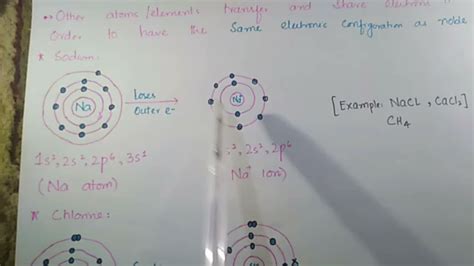 ↔ Other atoms/elements transfer and share electrons
Order to have the Same electronic configuration as noble
* Sodium:
Na
Loses
Outer e-
Na+
[Example: NaCL, CaCl₂]
CH₄
1s², 2s², 2p⁶, 3s¹
², 2s², 2p⁶
(Na atom)
Na⁺ Ion)
* Chlorine: